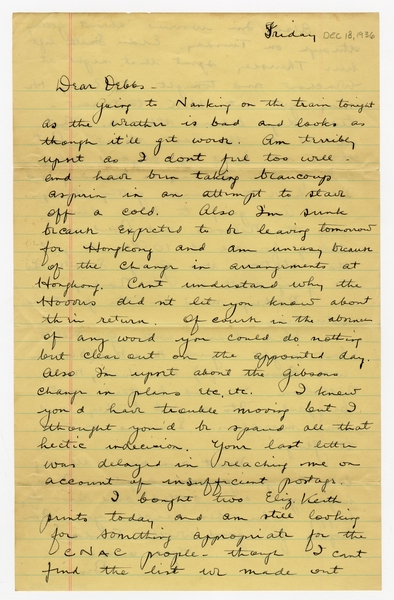 Friday DEC 18, 1936
Dear Debbs -
Going to Nanking on the train tonight
as the weather is bad and looks as
though it'll get worse. Am terribly
upset as I don't feel too well -
and have been taking beaucoup
aspirin in an attempt to stave
off a cold. Also I'm sunk
because expected to be leaving tomorrow
for Hongkong and am uneasy because
of the change in arrangements at
Hongkong. Can't understand why the
didn't let you know about
their return. Of course in the absence
of any word you could do nothing
but clear out on the appointed day.
Also I'm upset about the Gibsons
change in plans etc, etc. I knew
you'd have trouble moving but I
thought you'd be spared all that
hectic indecision. Your last letter
was delayed in reaching me on
account of insufficient postage.
I bought two Eliz. Keith
prints today and am still looking
for something appropriate for the
CNAC people - though I can't
find the list we made out